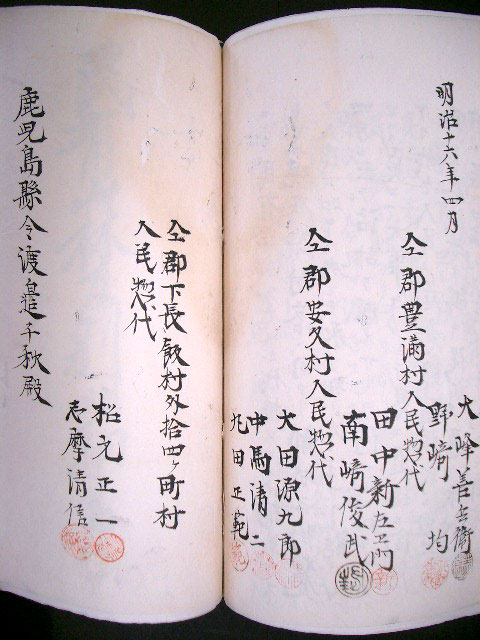 明治十六年四月
大峰善兵衛
野﨑均
仝郡豊満村人民惣代
田中新左エ門
南﨑俊武
仝郡安久村人民惣代
大田源九郎
中馬清二
丸田正範
仝郡下長飯村外拾四ヶ町村
人民惣代
松元正一
志摩清信
鹿児島縣令渡邉千秋殿